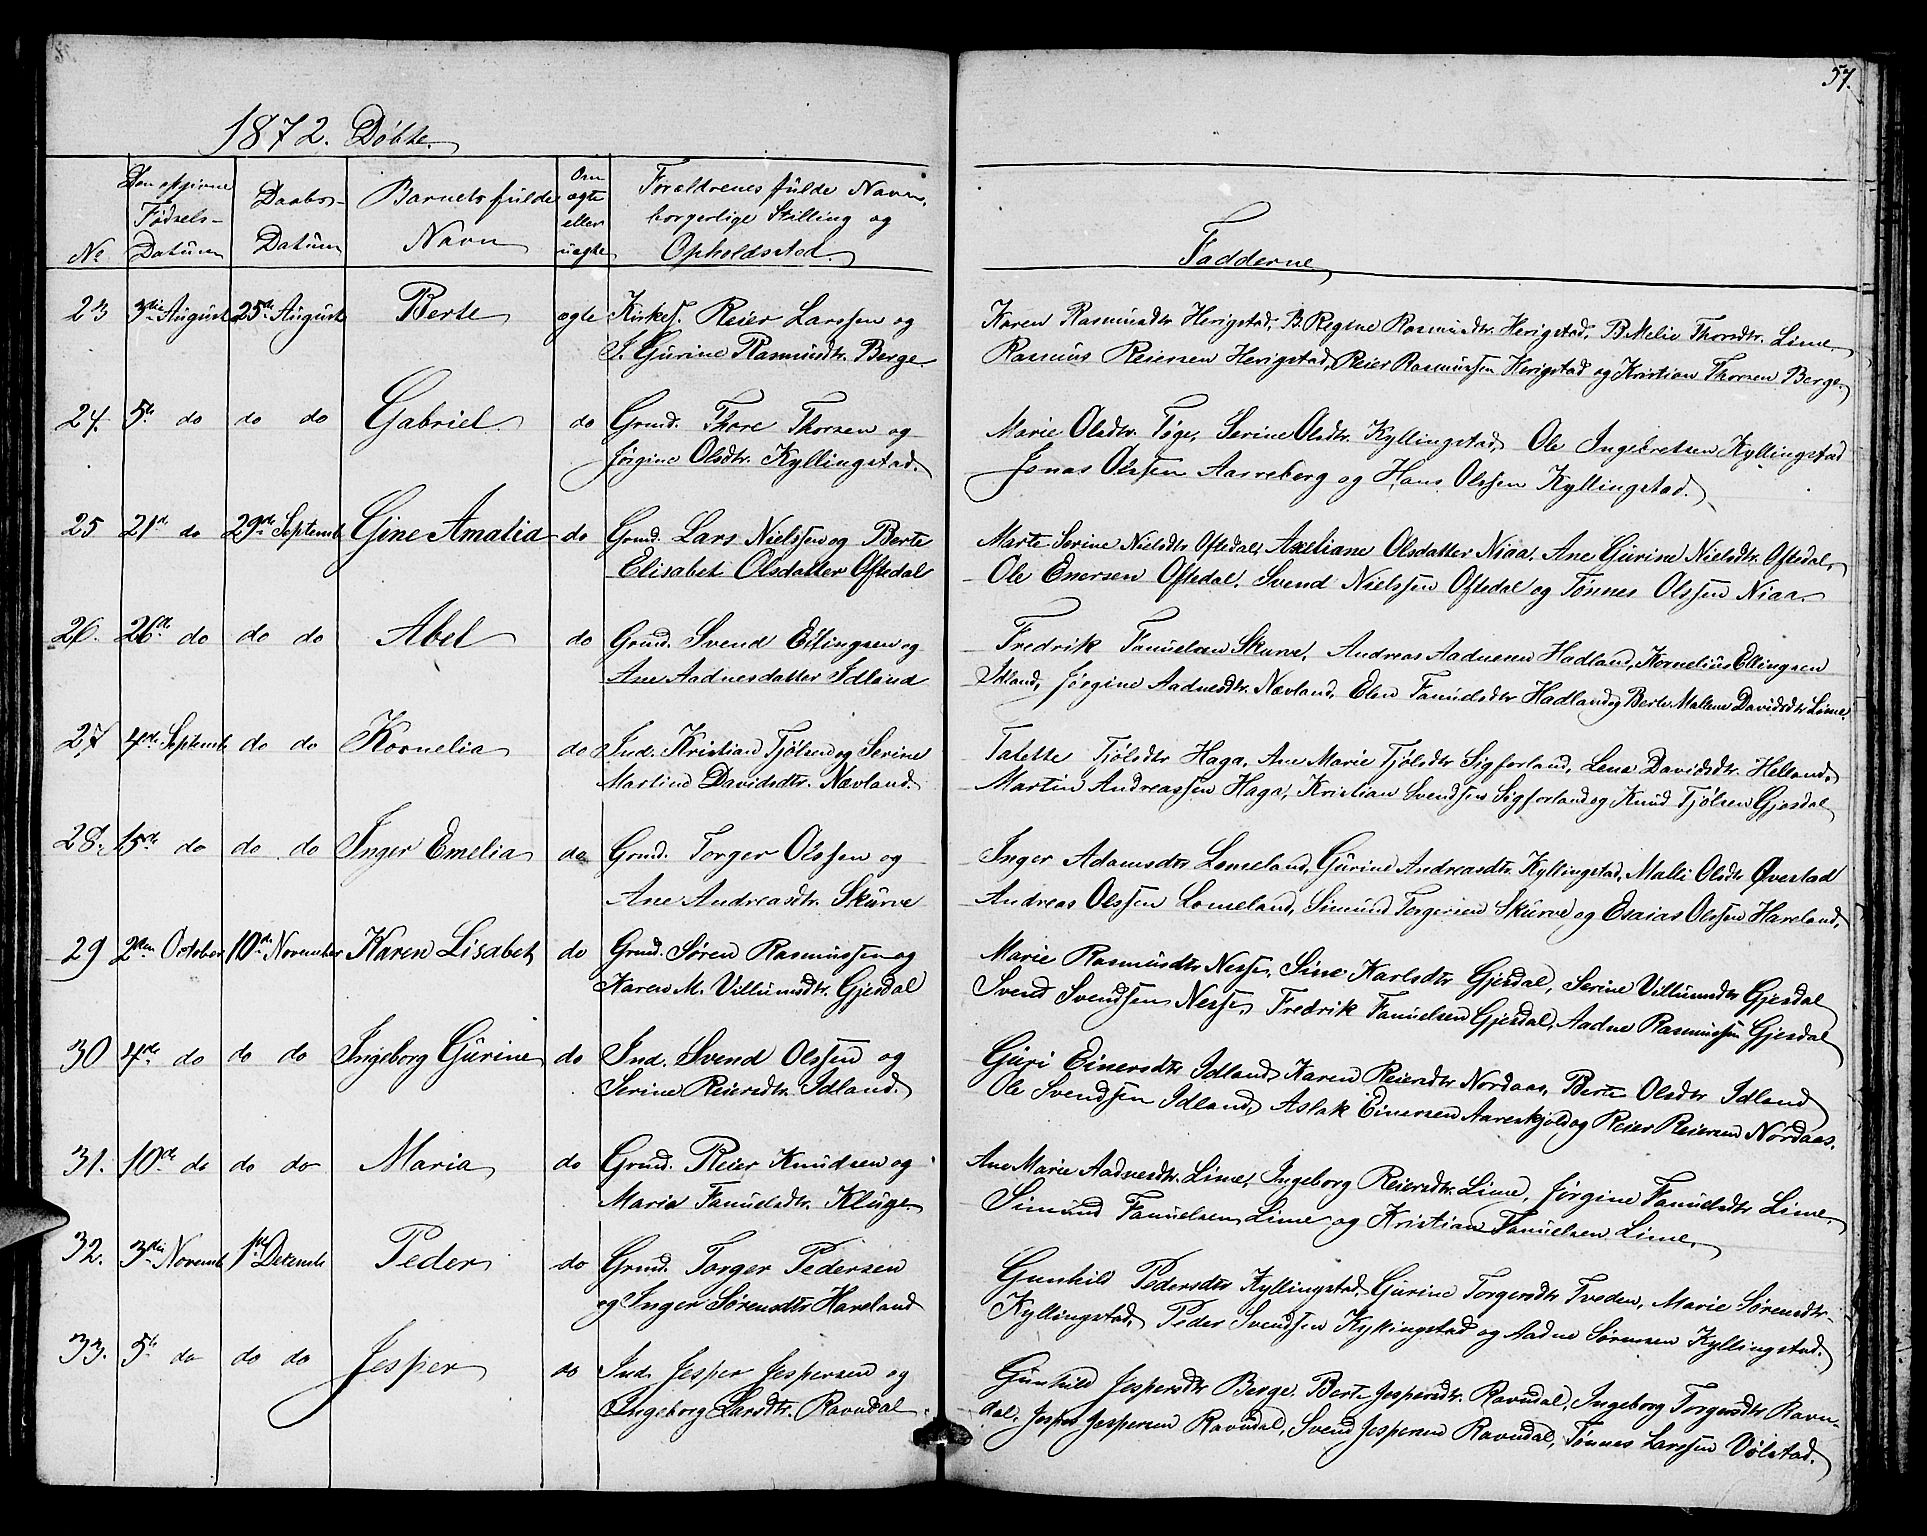 57.
1872. Døbte.
No
Den opgivne Fødsels-Datum
Daabs-Datum
Barnets fulde Navn
Om ægte eller uægte
Forældrenes fulde Navn, borgerlige Stilling og Opholdssted.
Fadderne
23 3die August 25de August Berte ægte Kirkes. Reier Larssen og
S. Gurine Rasmusdtr. Berge.
Karen Rasmusdtr Herigstad, B. Regine Rasmusdtr. Herigstad, B. Melie Thorsdtr. Lime,
Rasmus Reiersen Herigstad, Reier Rasmussen Herigstad og Kristian Thorsen Berge.
24. 5te do do do Gabriel. do Grmd. Thore Thorsen og
Jørgine Olsdtr. Kyllingstad.
Marie Olsdtr. Tøge, Serine Olsdtr. Kyllingstad, Ole Ingebretsen Kyllingstad
Jonas Olssen Aarreberg og Hans Olssen Kyllingstad.
25 21de do 29de Septemb. Gine Amalia do Grmd. Lars Nielssen og Berte
Elisabet Olsdatter Oftedal
Marte Serine Nielsdtr Oftedal, Axeliane Olsdatter Niaa, Ane Gurine Nielsdtr. Oftedal,
Ole Enersen Oftedal, Svend Nielssen Oftedal og Tønnes Olssen Niaa.
26. 26de do do do Abel do Grmd. Svend Ellingsen og
Ane Aadnesdatter Idland
Fredrik Fanuelsen Skurve, Andreas Aadnesen Hadland, Kornelius Ellingsen
Idland, Jørgine Aadnesdtr. Nævland, Elen Fanuelsdtr Hadland og Berte Malene Davidsdtr Lime.
27 4de Septemb. do do Kornelia do Ind. Kristian Tjølsen og Serine
Martine Davidsdtr. Nævland.
Talette Tjølsdtr Haga, Ane Marie Tjølsdtr Sigforland, Lena Davidsdtr. Helland,
Martin Andreassen Haga, Kristian Svendsen Sigforland og Knud Tjølsen Gjesdal
28. 15de do do do Inger Emelia do Grmd. Torger Olssen og
Ane Andreasdtr. Skurve
Inger Adamsdtr Lomeland, Gurine Andreasdtr. Kyllingstad, Malli Olsdtr Øvestad
Andreas Olssen Lomeland, Simund Torgersen Skurve og Esaias Olssen Haveland,
29 2den October 10de November Karen Lisabet do Grmd. Søren Rasmussen og
Karen M. Villumsdtr. Gjesdal
Marie Rasmusdtr Nesse, Sine Karlsdtr Gjesdal, Serine Villumsdtr Gjesdal
Svend Svendsen Nesse, Fredrik Fanuelsen Gjesdal, Aadne Rasmussen Gjesdal
30 4de do do do Ingeborg Gurine do Ind. Svend Olssen og
Serine Reiersdtr. Idland.
Guri Einersdtr Idland, Karen Reiersdtr Nordaas, Berte Olsdtr Idland
Ole Svendsen Idland, Aslak Einersen Aareskjold og Reier Reiersen Nordaas.
31. 10de do do do Maria do Grmd. Reier Knudsen og
Maria Fanuelsdtr. Kluge.
Ane Marie Aadnesdtr. Lime, Ingeborg Reiersdtr. Lime, Jørgine Fanuelsdtr Lime,
Simund Fanuelsen Lime og Kristian Fanuelsen Lime,
32. 3die Novemb. 1ste Decemb Peder do Grmd. Torger Pedersen
og Inger Sørensdtr Haveland
Gunhild Pedersdtr Kyllingstad, Gurine Torgersdtr Tveden, Marie Sørensdtr.
Kyllingstad, Peder Svendsen Kyllingstad og Aadne Sørensen Kyllingstad.
33. 5te do do do Jesper do Ind. Jesper Jespersen og
Ingeborg Larsdtr. Ravndal.
Gunhild Jespersdtr Berge, Berte Jespersdtr. Ravndal, Ingeborg Torgersdtr Ravn-
dal, Jesper Jespersen Ravndal, Svend Jespersen Ravndal, Tønnes Larssen Vølstad.